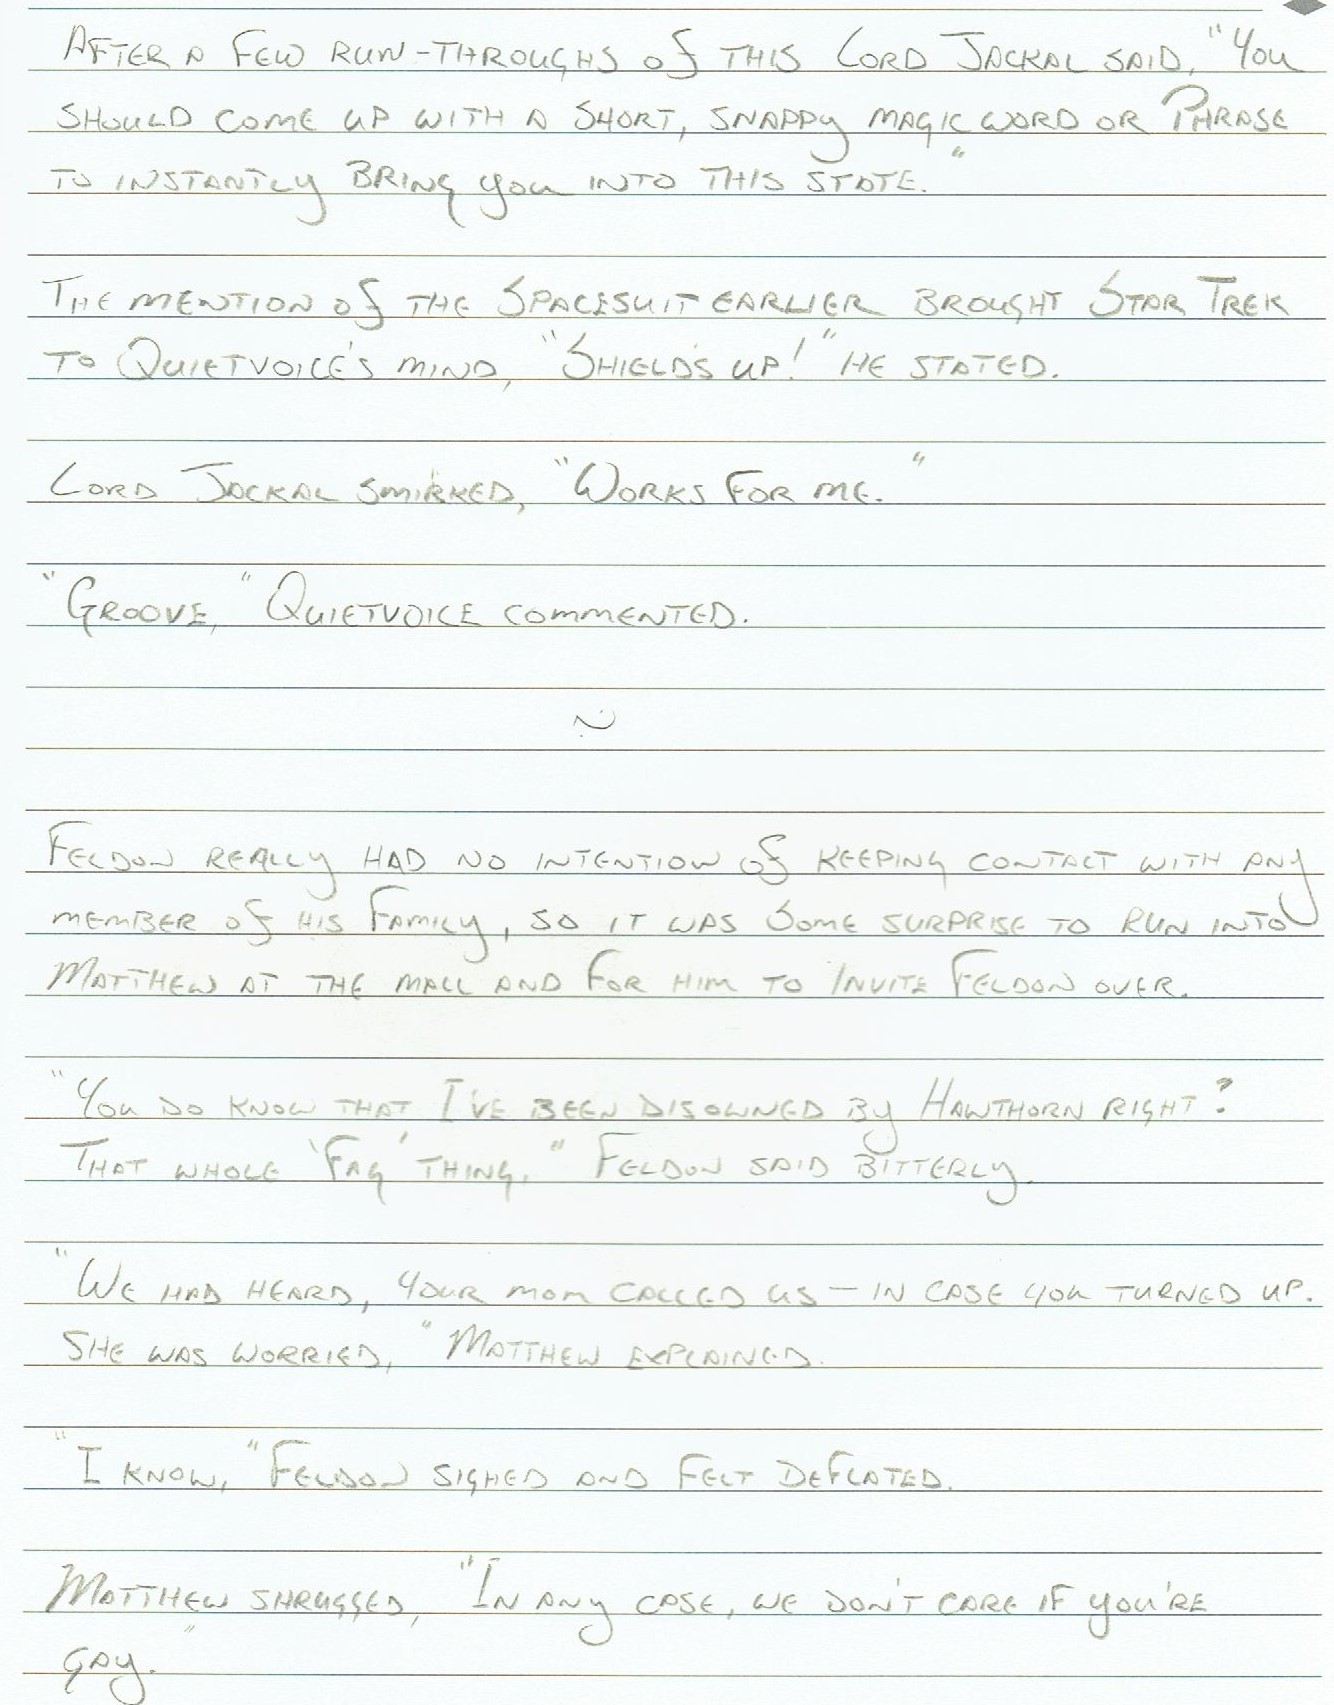 After a few run-throughs of this Lord Jackal said, "You
should come up with a short, snappy magic word or phrase
to instantly bring you into this state."
The mention of the spacesuit earlier brought Star Trek
to Quietvoice's mind, "Shield's up!" he stated.
Lord Jackal smirked, "Works for me."
"Groove," Quietvoice commented.
~
Feldon really had no intention of keeping contact with any
member of his family, so it was some surprise to run into
Matthew at the mall and for him to invite Feldon over.
"You do know that I've been disowned by Hawthorn right?
That whole 'fag' thing," Feldon said bitterly.
"We had heard, your mom called us – in case you turned up.
She was worried," Matthew explained.
"I know," Feldon sighed and felt deflated.
Matthew shrugged, "In any case, we don't care if you're
gay."